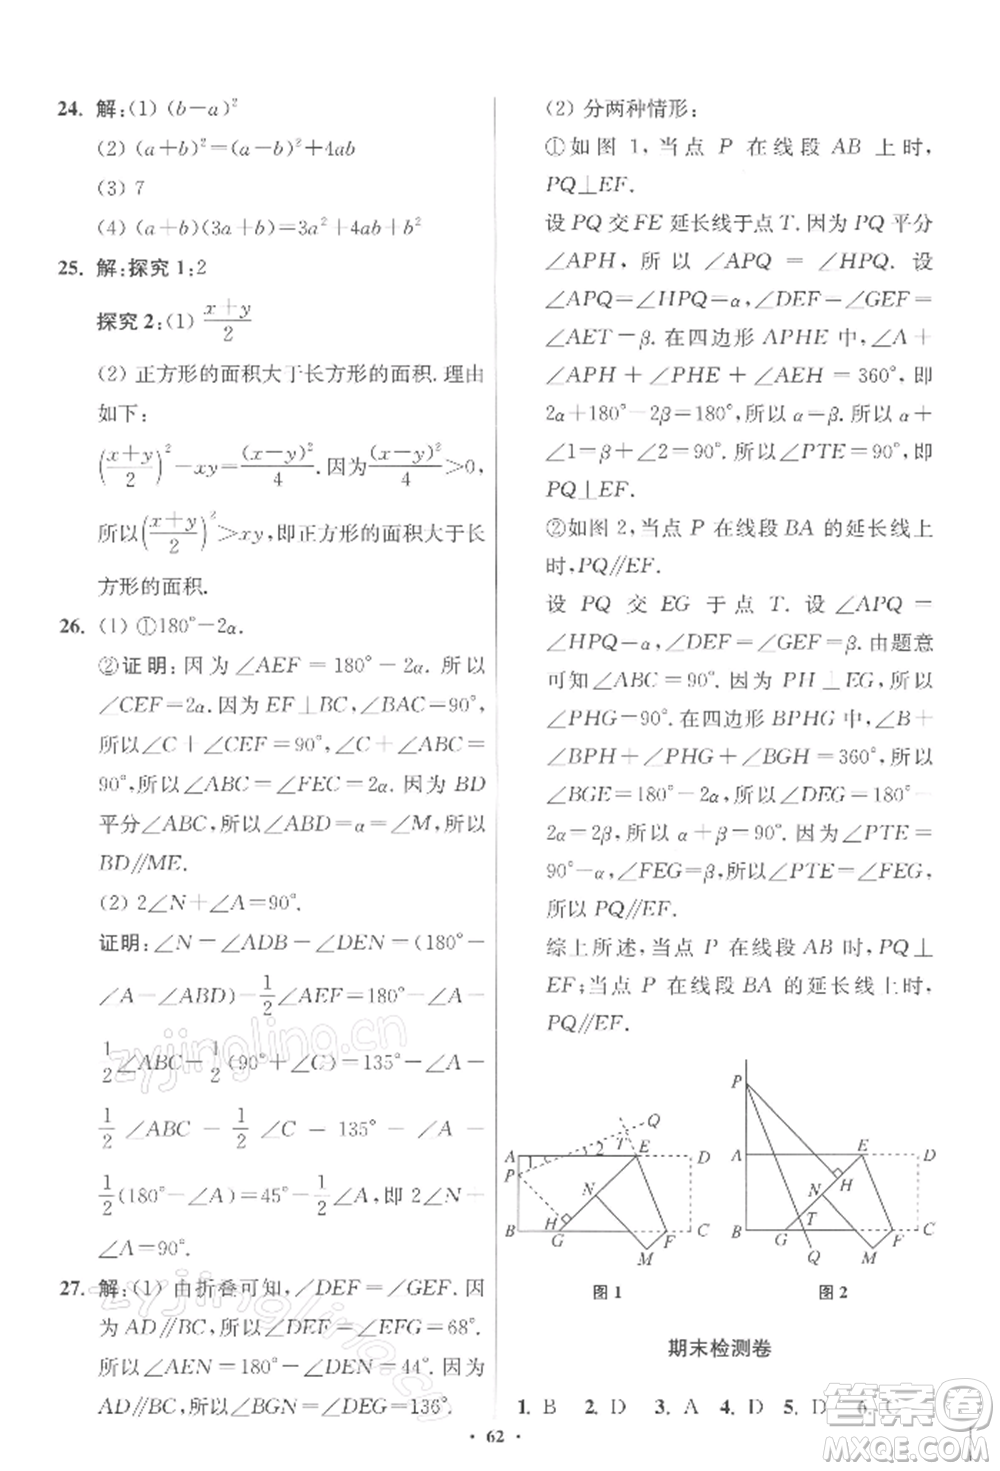 24. 解:(1) (b-a)²
(2) (a+b)²=(a-b)²+4ab
(3) 7
(4) (a+b)(3a+b)=3a²+4ab+b²
25. 解:探究1:2
探究2:(1) (x+y)/2
(2) 正方形的面积大于长方形的面积.理由
如下:
((x+y)/2)²-xy=(x-y)²/4.因为(x-y)²/4>0,
所以((x+y)/2)²>xy,即正方形的面积大于长
方形的面积.
26. (1) ①180°-2α.
②证明:因为∠AEF=180°-2α.所以
∠CEF=2α.因为EF⊥BC,∠BAC=90°,
所以∠C+∠CEF=90°,∠ABC+∠C=
90°,所以∠ABC=∠FEC=2α.因为BD
平分∠ABC,所以∠ABD=α=∠M,所以
BD//ME.
(2) 2∠N+∠A=90°.
证明:∠N=∠ADB-∠DEN=(180°-
∠A-∠ABD)-1/2∠AEF=180°-∠A-
1/2∠ABC-1/2(90°+∠C)=135°-∠A-
1/2∠ABC-1/2∠C=135°-∠A-
1/2(180°-∠A)=45°-1/2∠A,即2∠N+
∠A=90°.
27. 解:(1) 由折叠可知,∠DEF=∠GEF.因
为AD//BC,所以∠DEF=∠EFG=68°.
所以∠AEN=180°-∠DEN=44°.因为
AD//BC,所以∠BGN=∠DEG=136°.
(2) 分两种情形:
①如图1,当点P在线段AB上时,
PQ⊥EF.
设PQ交FE延长线于点T.因为PQ平分
∠APH,所以∠APQ=∠HPQ.设
∠APQ=∠HPQ=α,∠DEF=∠GEF=
∠AET=β.在四边形APHE中,∠A+
∠APH+∠PHE+∠AEH=360°,即
2α+180°-2β=180°,所以α=β.所以α+
∠1=β+∠2=90°.所以∠PTE=90°,所以
PQ⊥EF.
②如图2,当点P在线段BA的延长线上
时,PQ//EF.
设PQ交EG于点T.设∠APQ=
∠HPQ=α,∠DEF=∠GEF=β.由题意
可知∠ABC=90°.因为PH⊥EG,所以
∠PHG=90°.在四边形BPHG中,∠B+
∠BPH+∠PHG+∠BGH=360°,所以
∠BGE=180°-2α,所以∠DEG=180°-
2α=2β,所以α+β=90°.因为∠PTE=
90°-α,∠FEG=β,所以∠PTE=∠FEG,
所以PQ//EF.
综上所述,当点P在线段AB时,PQ⊥
EF;当点P在线段BA的延长线上时,
PQ//EF.
A P B G H N T E F M C D Q 1 2
图1
P A B G N H T E F M C D Q
图2
期末检测卷
1. B 2. D 3. A 4. D 5. D 6. C
· 62 ·
zyjingling.cn
zyjingling.cn
答案圈
MXQE.COM